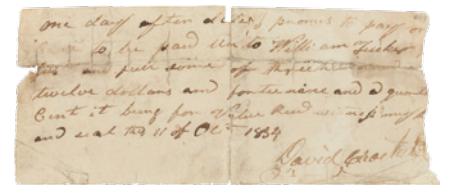 One day after date promes to pay or
to be paid un to William Tucker
and full some of three
twelve dollars and forte nine and a quarter
Cent it being for Value Recd witness my h
and seal this 11 of Oct 1834
David Crockett